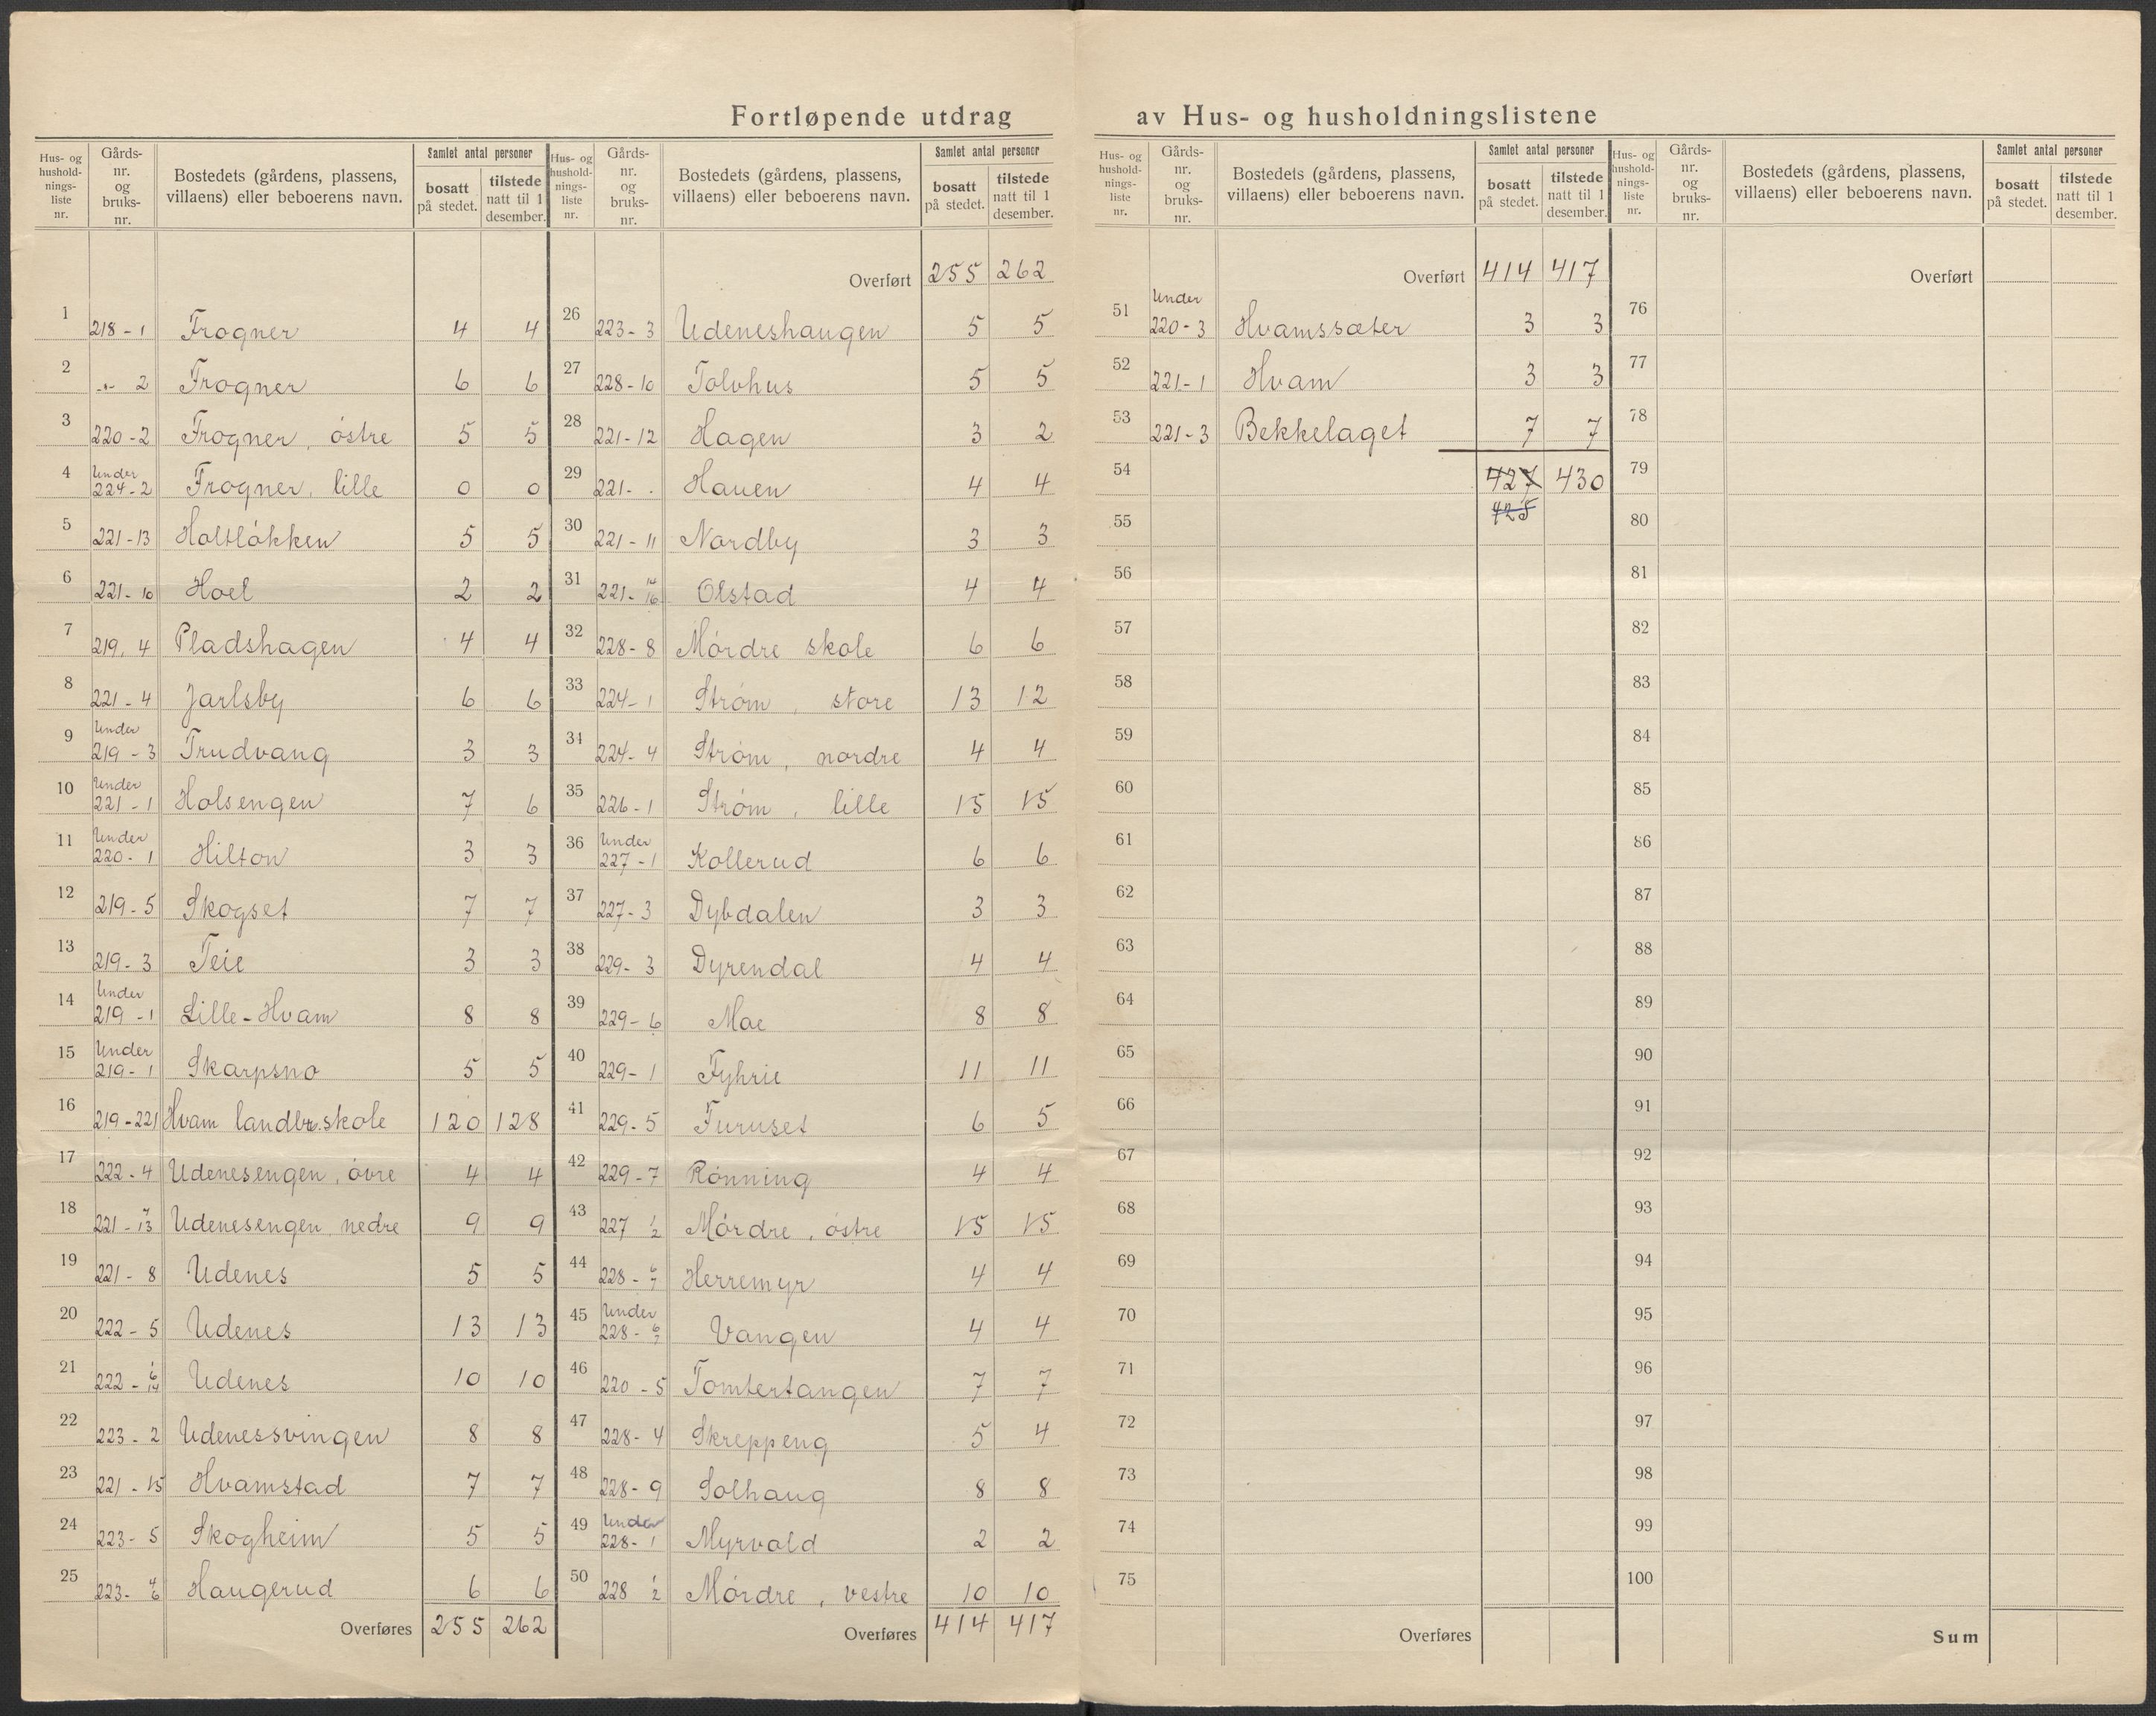 Fortløpende utdrag av Hus- og husholdningslistene
Hus- og hushold-nings-liste nr. | Gårds-nr. og bruks-nr. | Bostedets (gårdens, plassens, villaens) eller beboerens navn. | Samlet antal personer bosatt på stedet. | tilstede natt til 1 desember.
1 218-1 Frogner 4 4
2 -"- 2 Frogner 6 6
3 220-2 Frogner, østre 5 5
4 Under 224-2 Frogner, lille 0 0
5 221-13 Holtløkken 5 5
6 221-10 Hoel 2 2
7 219, 4 Pladshagen 4 4
8 221-4 Jarlsby 6 6
9 Under 219-3 Trudvang 3 3
10 Under 221-1 Holsengen 7 6
11 Under 220-1 Hilton 3 3
12 219-5 Skogset 7 7
13 219-3 Teie 3 3
14 Under 219-1 Lille-Hvam 8 8
15 Under 219-1 Skarpsno 5 5
16 219-221 Hvam landbr.skole 120 128
17 222-4 Udenesengen, øvre 4 4
18 221-7/13 Udenesengen, nedre 9 9
19 221-8 Udenes 5 5
20 222-5 Udenes 13 13
21 222- Udenes 10 10
22 223-2 Udenessvingen 8 8
23 221-15 Hvamstad 7 7
24 223-5 Skogheim 5 5
25 223-4/6 Haugerud 6 6
Overføres 255 262
Hus- og hushold-nings-liste nr. | Gårds-nr. og bruks-nr. | Bostedets (gårdens, plassens, villaens) eller beboerens navn. | Samlet antal personer bosatt på stedet. | tilstede natt til 1 desember.
Overført 255 262
26 223-3 Udeneshaugen 5 5
27 228-10 Tolvhus 5 5
28 221-12 Hagen 3 2
29 221- . Hauen 4 4
30 221-11 Nordby 3 3
31 221-14/16 Olstad 4 4
32 228-8 Mørdre skole 6 6
33 224-1 Strøm, store 13 12
34 224-4 Strøm, nordre 4 4
35 226-1 Strøm, lille 15 15
36 Under 227-1 Kollerud 6 6
37 227-3 Dybdalen 3 3
38 229-3 Dyrendal 4 4
39 229-6 Moe 8 8
40 229-1 Fyhrie 11 11
41 229-5 Furuset 6 5
42 229-7 Rønning 4 4
43 227 1/2 Mørdre, østre 15 15
44 228-6/7 Herremyr 4 4
45 Under 228-6/7 Vangen 4 4
46 220-5 Tomtertangen 7 7
47 228-4 Skreppeng 5 4
48 228-9 Solhaug 8 8
49 Under 228-1 Myrvold 2 2
50 228 1/2 Mørdre, vestre 10 10
Overføres 414 417
Hus- og hushold-nings-liste nr. | Gårds-nr. og bruks-nr. | Bostedets (gårdens, plassens, villaens) eller beboerens navn. | Samlet antal personer bosatt på stedet. | tilstede natt til 1 desember.
Overført 414 417
51 Under 220-3 Hvamssæter 3 3
52 221-1 Hvam 3 3
53 221-3 Bekkelaget 7 7
54 427 430
55 428
56
57
58
59
60
61
62
63
64
65
66
67
68
69
70
71
72
73
74
75
Overføres
Hus- og hushold-nings-liste nr. | Gårds-nr. og bruks-nr. | Bostedets (gårdens, plassens, villaens) eller beboerens navn. | Samlet antal personer bosatt på stedet. | tilstede natt til 1 desember.
Overført
76
77
78
79
80
81
82
83
84
85
86
87
88
89
90
91
92
93
94
95
96
97
98
99
100
Sum